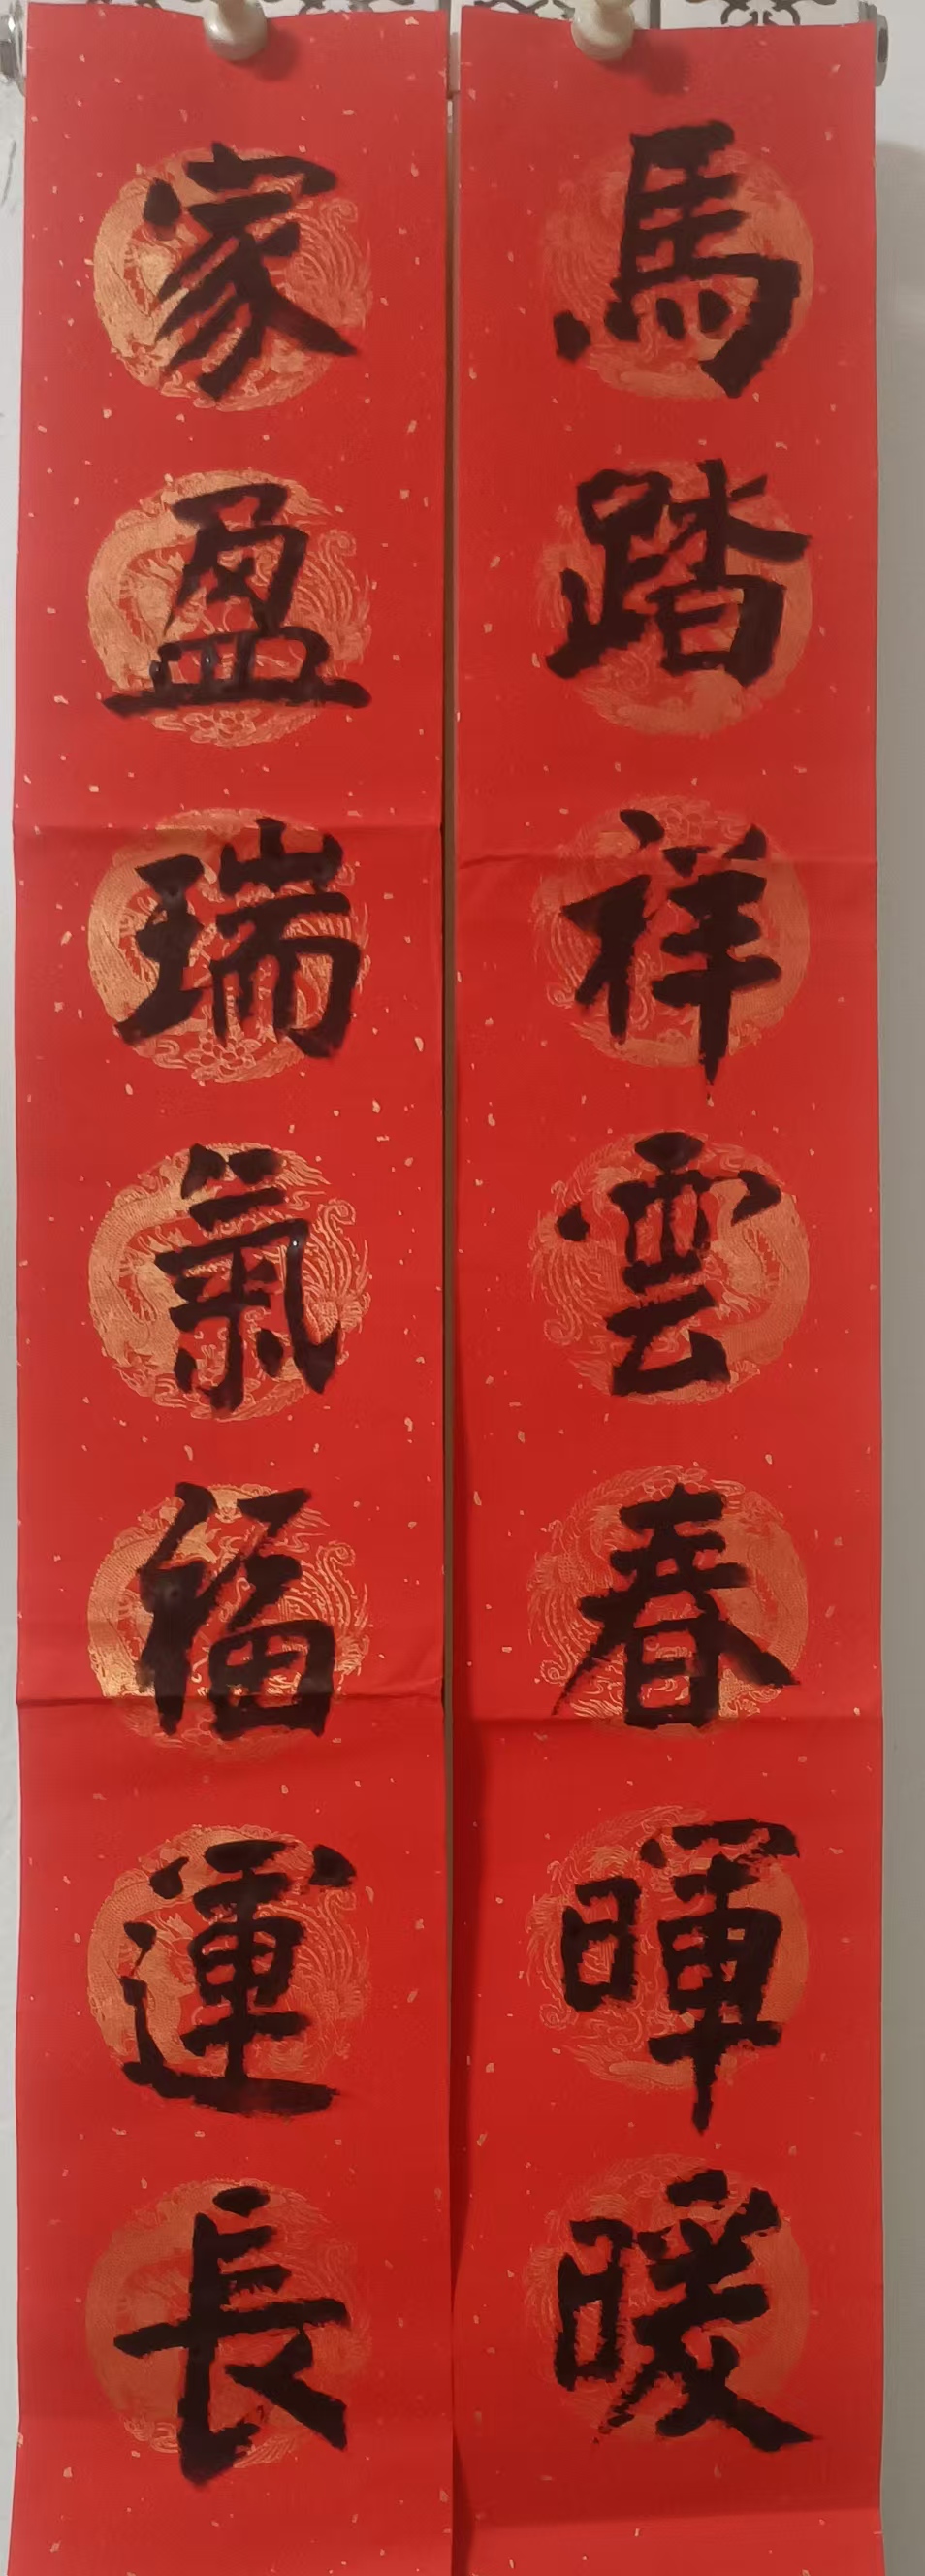 馬踏祥雲春暉暖
家盈瑞氣福運長